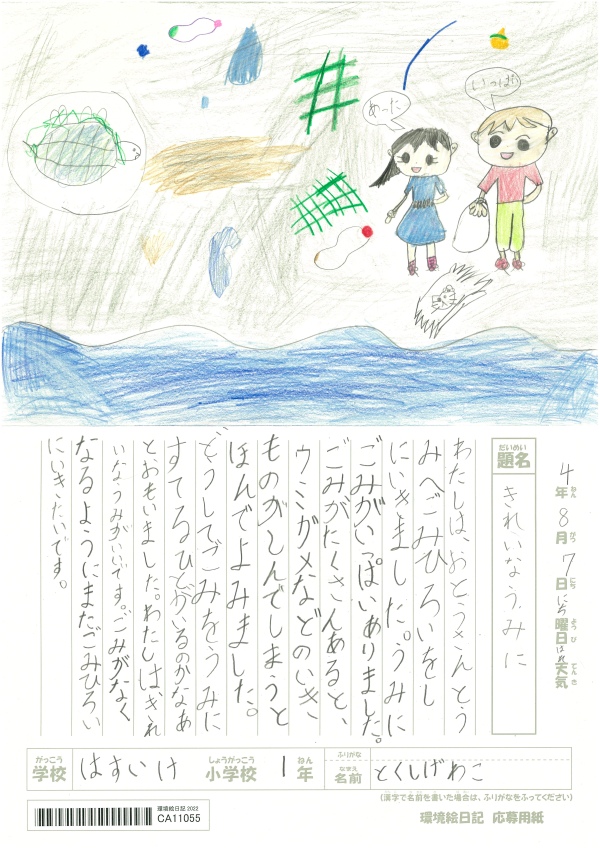 あった
いっぱい
4年8月7日にち曜日はれ天気
ねん
がつ
にち
ようび
てんき
だいめい
題名
きれいなうみに
わたしは、おとうさんとう
みへごみひろいをし
にいきました。うみに
ごみがいっぱいありました。
ごみがたくさんあると、
ウミガメなどのいき
ものがしんでしまうと
ほんでよみました。
どうしてごみをうみに
すてるひとがいるのかなあ
とおもいました。わたしは、きれ
いなうみがいいです。ごみがなく
なるようにまたごみひろい
にいきたいです。
がっこう
学校
はすいけ
しょうがっこう
小学校
1
ねん
年
ふりがな
なまえ
名前
とくしげわこ
(漢字で名前を書いた場合は、ふりがなをふってください)
環境絵日記 2022
CA11055
環境絵日記 応募用紙